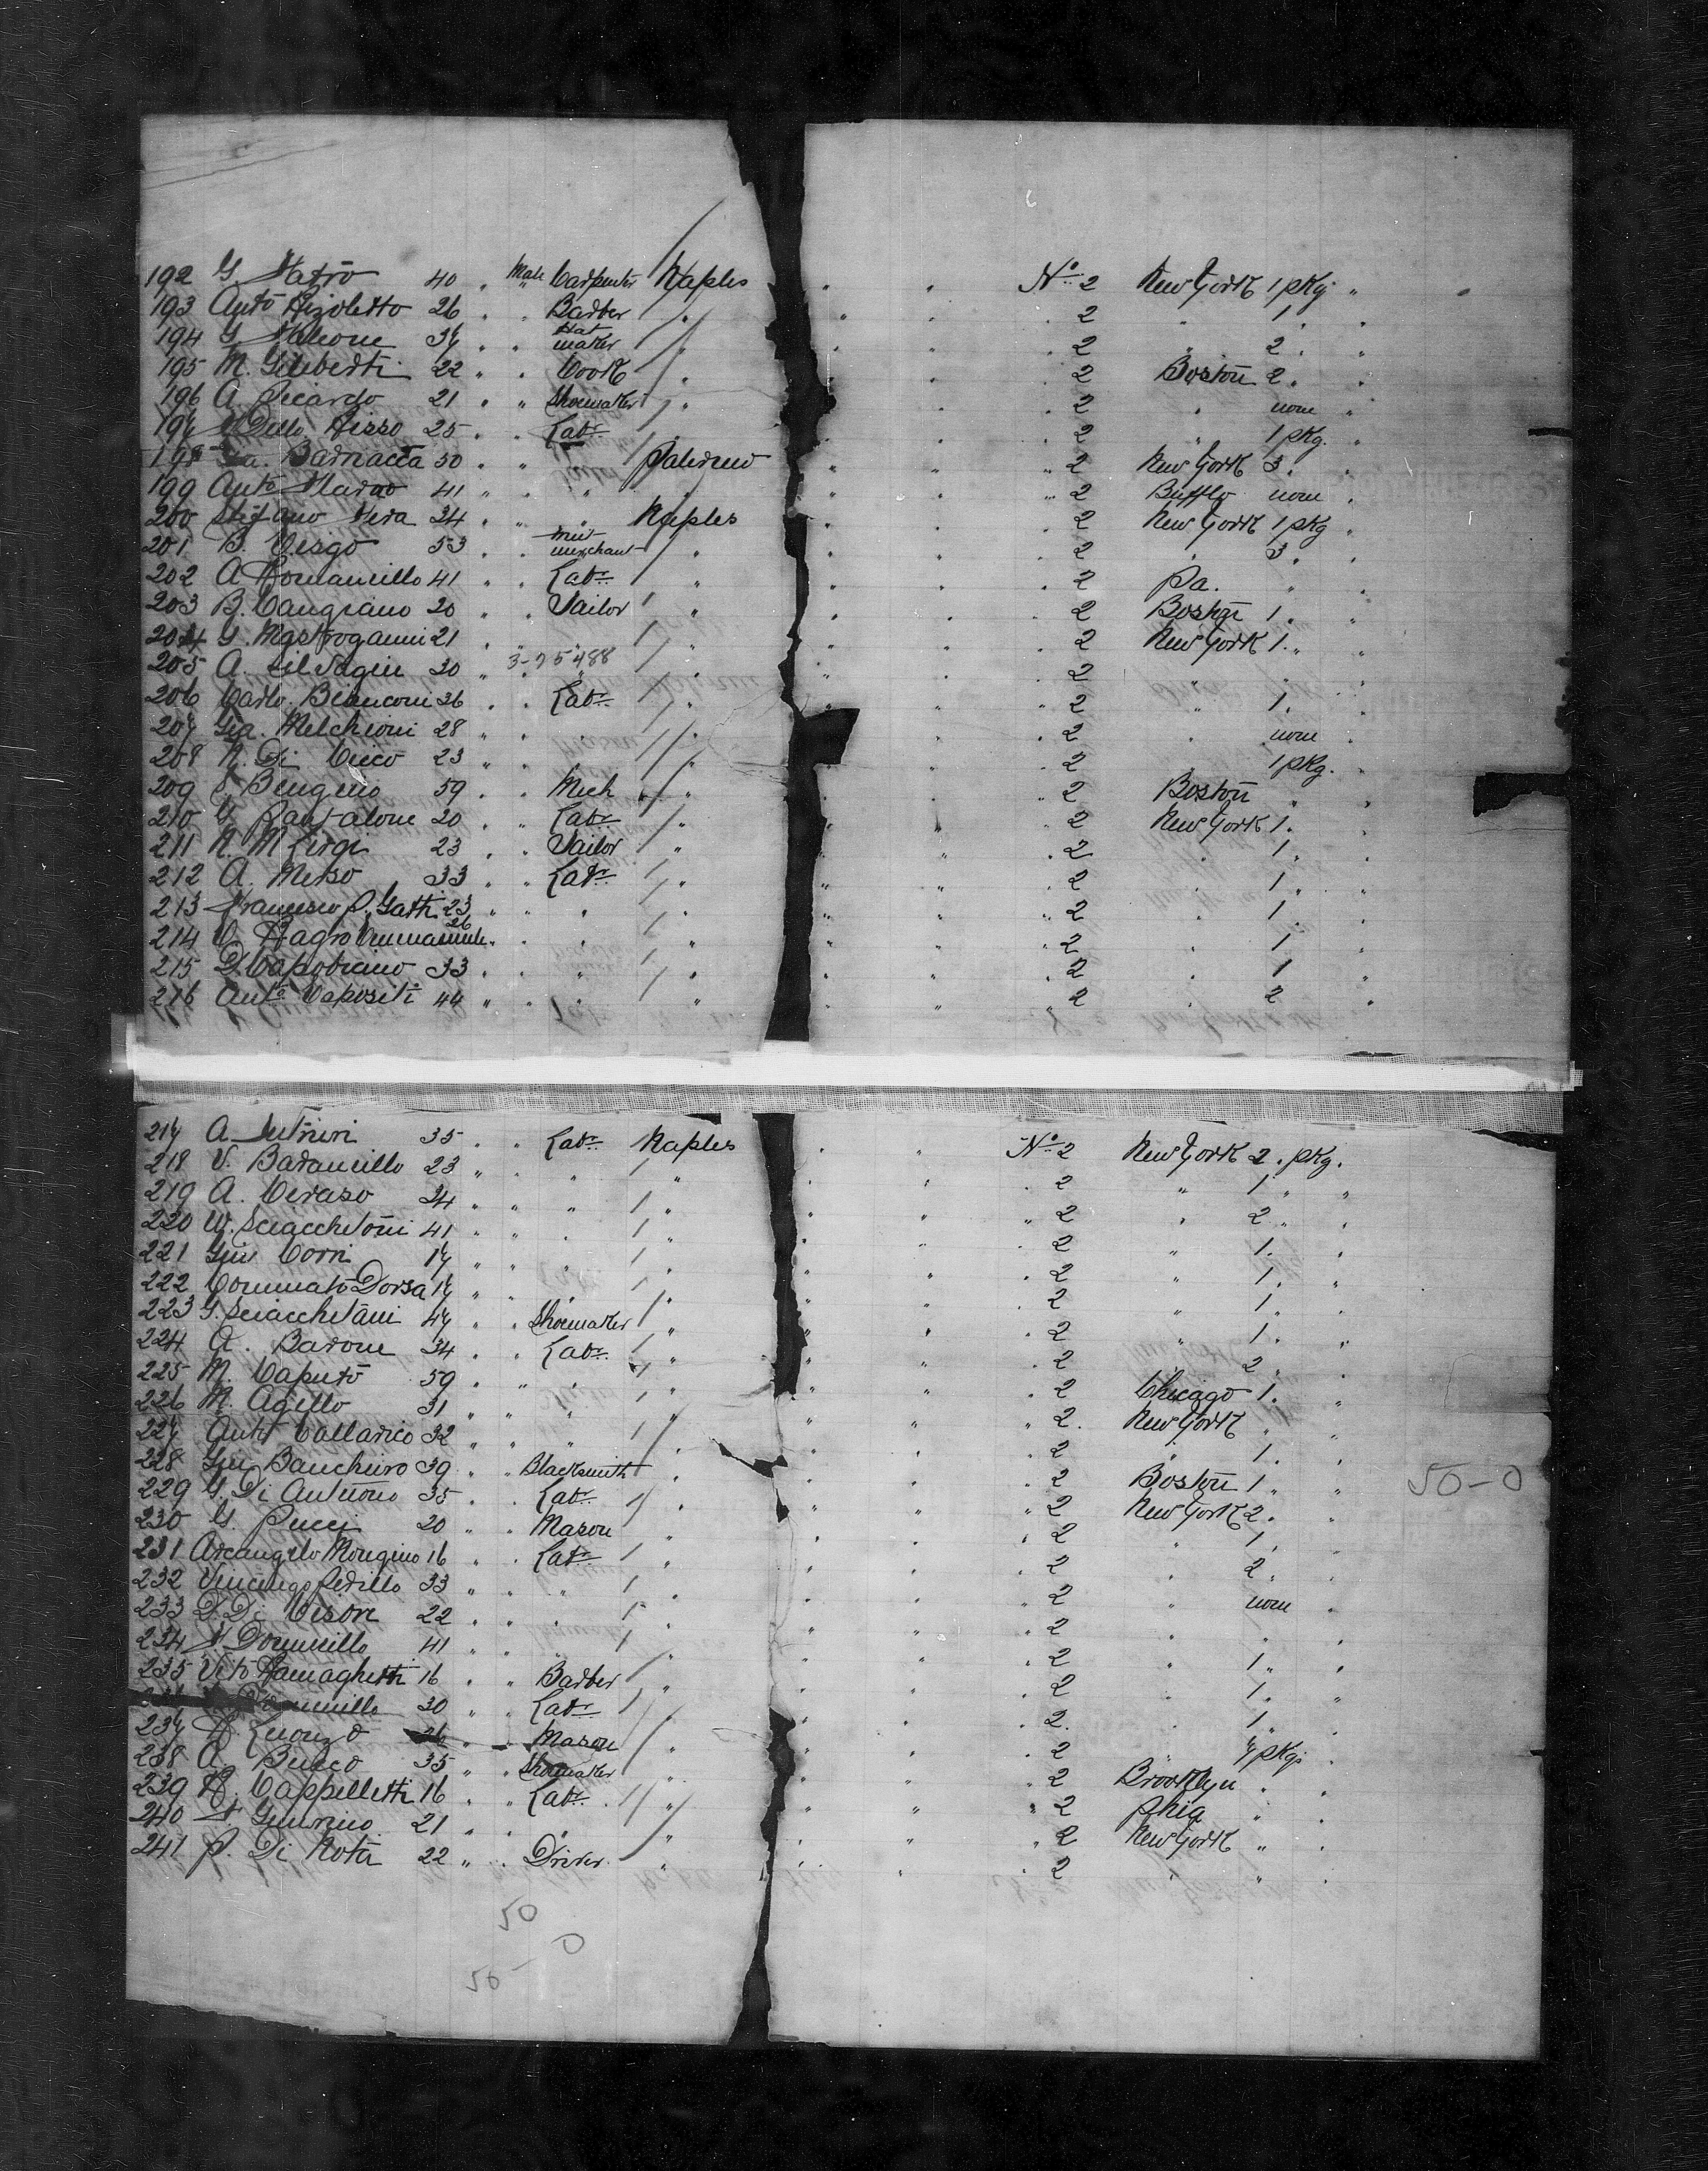 192 G. 40 " Male Carpenter Naples " " No 2 New York 1 pkg "
193 Anto Rizoletto 26 " " Barber " " " " 2 " 1 " "
194 G 34 " " Hat maker " " " " 2 " 2 " "
195 M. Giliberti 22 " " Cook " " " " 2 Boston 2 " "
196 A. Picardo 21 " " Shoemaker " " " " 2 " none "
197 Dello Risso 25 " " Labr " " " " 2 " 1 pkg. "
198 Gia. Barnacca 50 " " " Palermo " " " 2 New York 3 " "
199 Anto 41 " " " " " " " 2 Bufflo none "
200 Stefano Vera 24 " " " Naples " " " 2 New York 1 pkg "
201 B. Cesgo 53 " " merchant " " " " 2 " 3 " "
202 A Romaniello 41 " " Labr " " " " 2 Pa. " "
203 B. Cangiano 20 " " Tailor " " " " 2 Boston 1 " "
204 G. Mastroganni 21 " " " " " " " 2 New York 1 " "
205 A. Silvagni 30 " 3-75488 " " " " 2 " " "
206 Carlo Bianconi 26 " " Labr " " " " 2 " 1 " "
207 Gia. Melchioni 28 " " " " " " " 2 " none "
208 N. Di Cicco 23 " " " " " " " 2 " 1 pkg. "
209 Bengino 59 " " Mech " " " " 2 Boston " "
210 G. Pantalone 20 " " Labr " " " " 2 New York 1 " "
211 N. M 23 " " Tailor " " " " 2 " 1 " "
212 A. Merso 33 " " Labr " " " " 2 " 1 " "
213 Francesco P. Gatti 23 " " " " " " " 2 " 1 " "
214 V. Ragro 26 " " " " " " " 2 " 1 "
215 D. Capobianco 33 " " " " " " " 2 " 1 "
216 Anto Capositi 44 " " " " " " " 2 " 2 "
217 A. 35 " " Labr Naples " " No 2 New York 2 " pkg.
218 V. Baraniello 23 " " " " " " " 2 " 1 " "
219 A. Ceraso 24 " " " " " " " 2 " 2 " "
220 W. Sciacchetoni 41 " " " " " " " 2 " 1 " "
221 Giu Corri 17 " " " " " " " 2 " 1 " "
222 Dorsa 17 " " " " " " " 2 " 1 " "
223 G. Sciacchetani 47 " " Shoemaker " " " " 2 " 1 " "
224 A. Barone 34 " " Labr " " " " 2 " 2 " "
225 M. Caputo 59 " " " " " " " 2 Chicago 1 " "
226 M. Agillo 31 " " " " " " " 2 New York " "
227 Anto Callarico 32 " " " " " " " 2 " 1 " "
228 Giu Banchiero 39 " " Blacksmith " " " " 2 Boston 1 " " 50-0
229 G. Di Antuono 35 " " Labr " " " " 2 New York 2 " "
230 G. Pucci 20 " " Mason " " " " 2 " 1 "
231 Arcangelo Mongino 16 " " Labr " " " " 2 " 2 " "
232 Vincenzo Perillo 33 " " " " " " " 2 " none "
233 D. Di Cisore 22 " " " " " " " 2 " " "
234 Domiello 41 " " " " " " " 2 " 1 " "
235 Vito Ramaghetti 16 " " Barber " " " " 2 " 1 " "
30 " " Labr " " " " 2 " 1 " "
237 R. Luongo 26 " " Mason " " " " 2 " 4 pkgs "
238 A. Bucco 35 " " Shoemaker " " " " 2 Brooklyn " "
239 R. Cappelletti 16 " " Labr " " " " 2 Phia " "
240 Guerino 21 " " " " " " " 2 New York " "
241 P. Di Nota 22 " " Driver " " " " 2 " " "
50
0
50 -